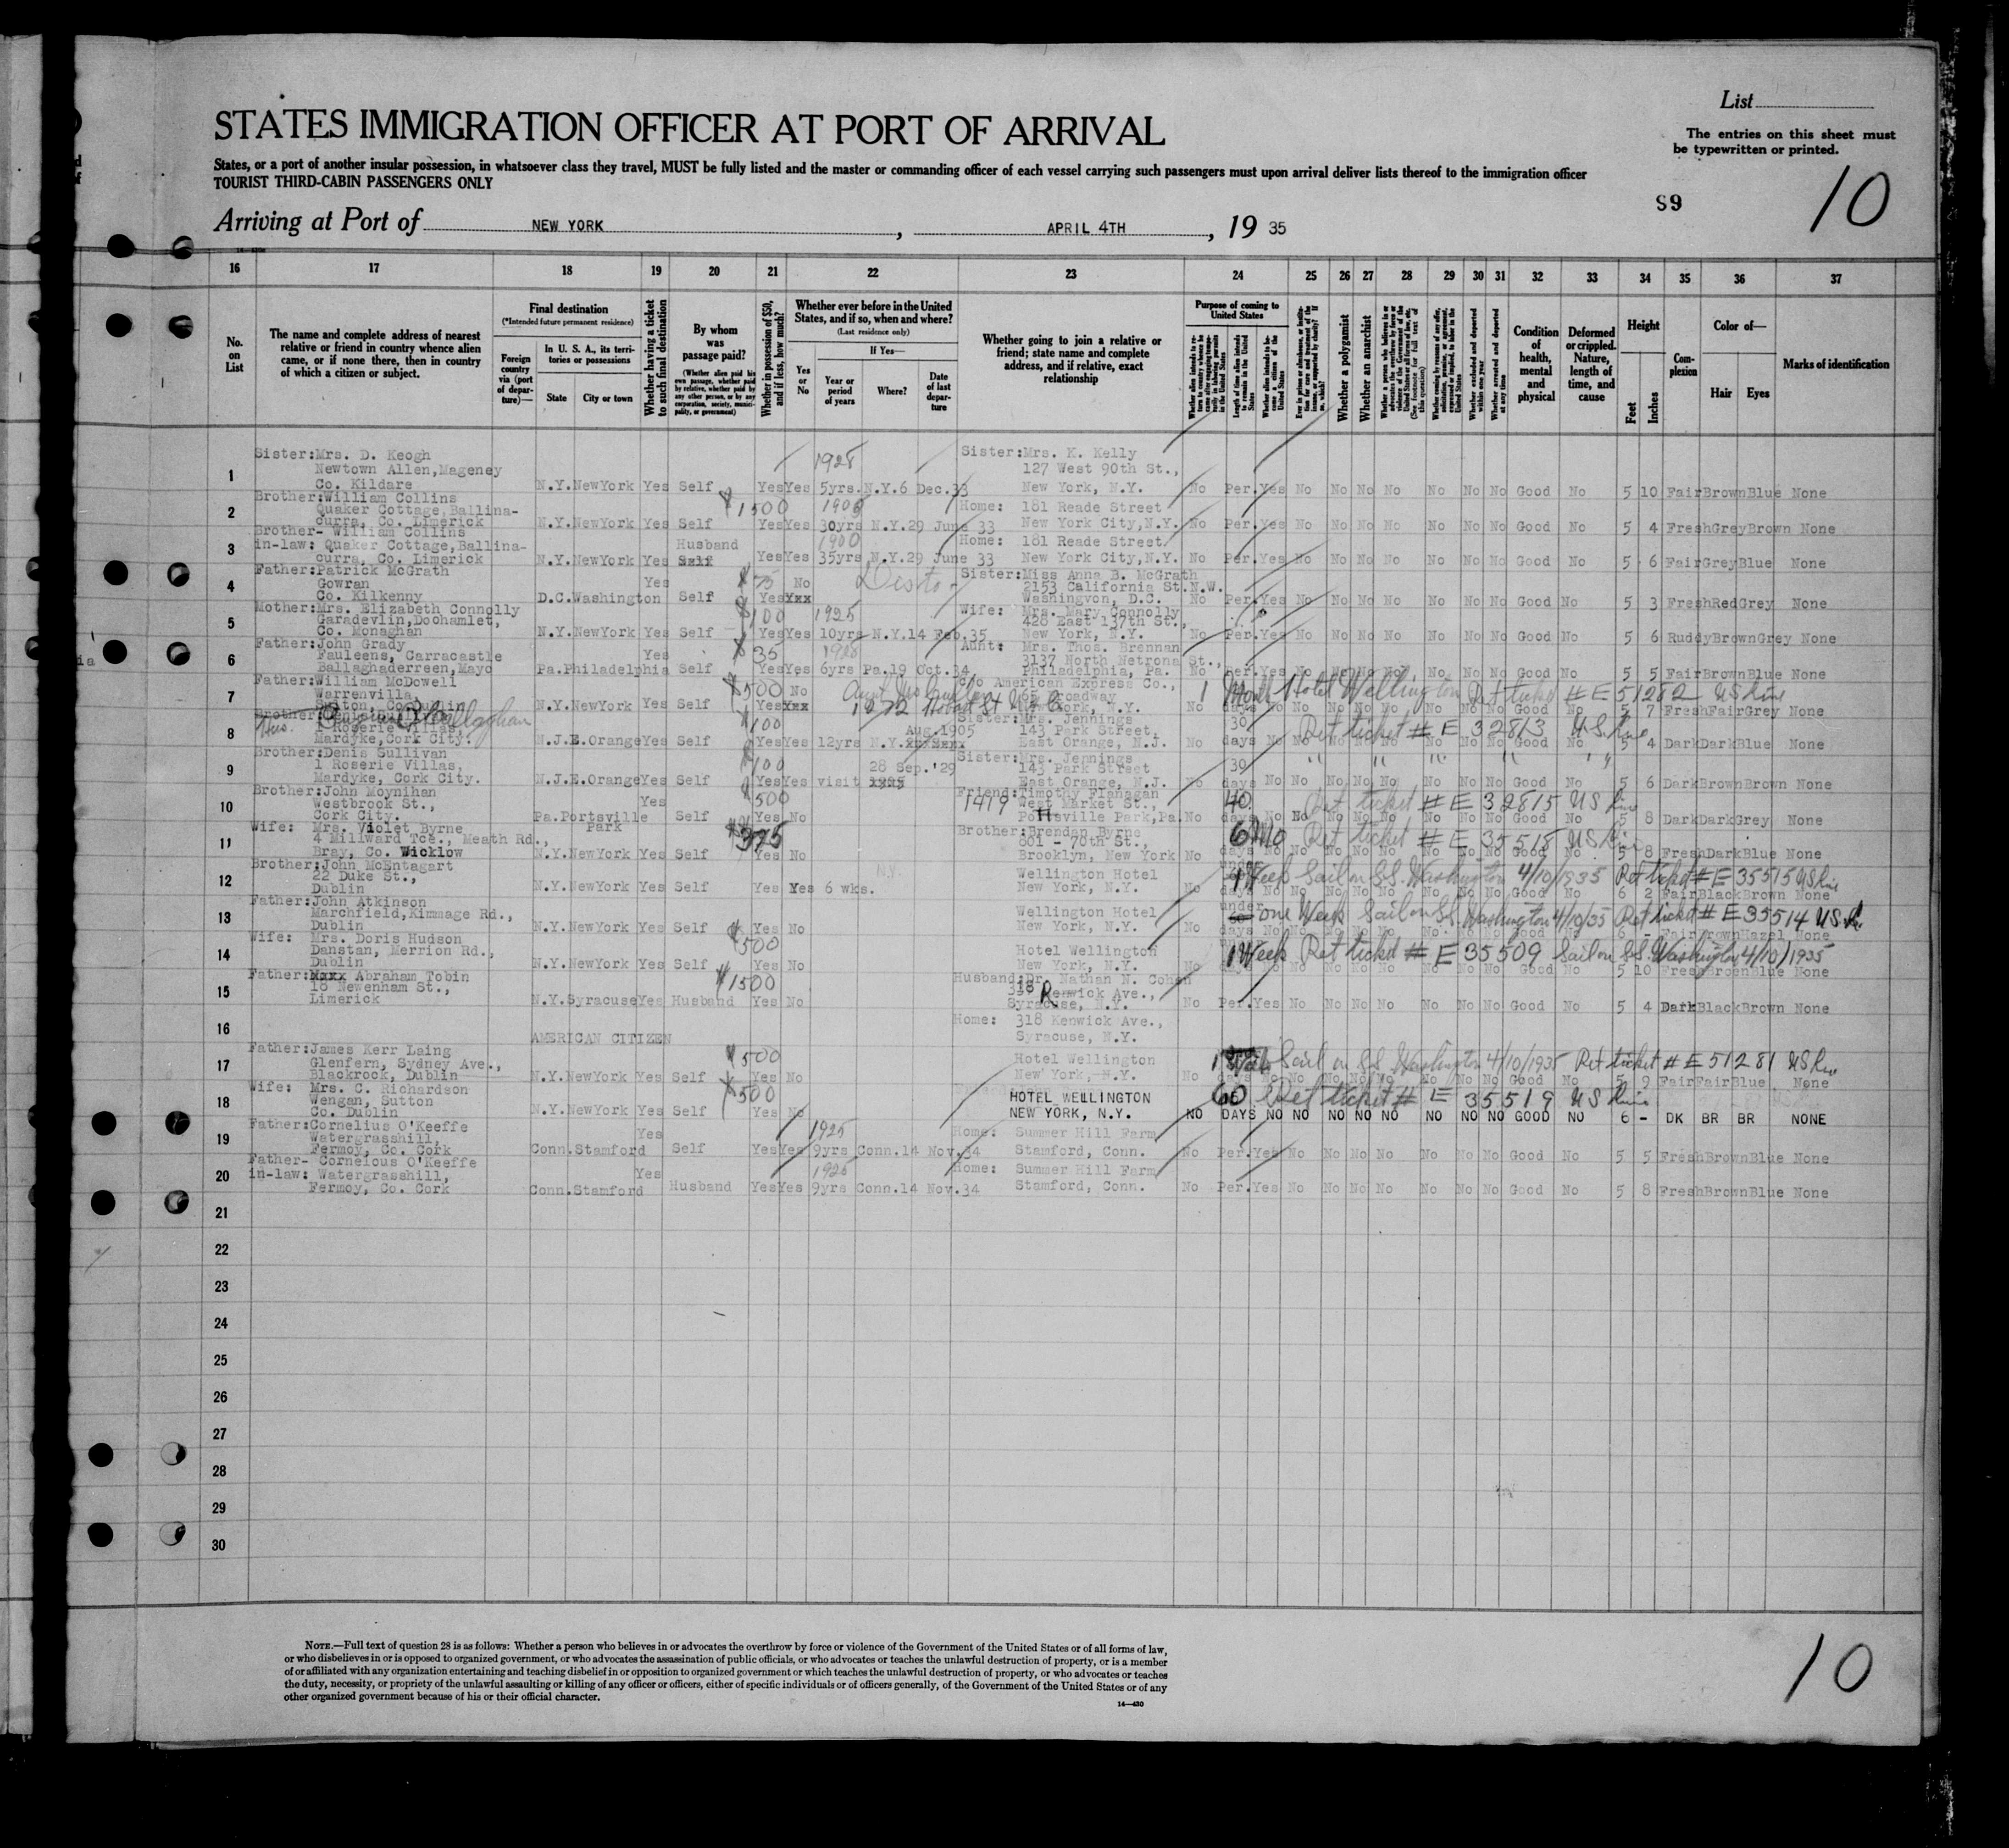 List
The entries on this sheet must
be typewritten or printed.
STATES IMMIGRATION OFFICER AT PORT OF ARRIVAL
States, or a port of another insular possession, in whatsoever class they travel, MUST be fully listed and the master or commanding officer of each vessel carrying such passengers must upon arrival deliver lists thereof to the immigration officer
TOURIST THIRD-CABIN PASSENGERS ONLY
S9
10
Arriving at Port of NEW YORK, APRIL 4TH, 19 35
16 17 18 19 20 21 22 23 24 25 26 27 28 29 30 31 32 33 34 35 36 37
No. on List
The name and complete address of nearest relative or friend in country whence alien came, or if none there, then in country of which a citizen or subject.
Final destination
(*Intended future permanent residence)
Foreign country via (port of departure)—
In U. S. A., its territories or possessions
State
City or town
Whether having a ticket to such final destination
By whom was passage paid?
(Whether alien paid his own passage, whether paid by relative, whether paid by any other person, or by any corporation, society, municipality, or government)
Whether in possession of $50, and if less, how much?
Whether ever before in the United States, and if so, when and where?
(Last residence only)
Yes or No
If Yes—
Year or period of years
Where?
Date of last departure
Whether going to join a relative or friend; state name and complete address, and if relative, exact relationship
Purpose of coming to United States
Length of time alien intends to remain in the United States
Whether a polygamist
Whether an anarchist
Whether arrested and deported at any time
Condition of health, mental and physical
Deformed or crippled. Nature, length of time, and cause
Height
Feet
Inches
Complexion
Color of—
Hair
Eyes
Marks of identification
1 Sister: Mrs. D. Keogh
Newtown Allen, Mageney
Co. Kildare
N.Y. NewYork Yes Self Yes Yes 1928 5yrs. N.Y. 6 Dec. 33
Sister: Mrs. K. Kelly
127 West 90th St.,
New York, N.Y.
No Per. Yes No No No No No No No Good No 5 10 Fair Brown Blue None
2 Brother: William Collins
Quaker Cottage, Ballina-
curra, Co. Limerick
N.Y. NewYork Yes Self $1500 Yes Yes 30yrs N.Y. 29 June 33
Home: 181 Reade Street
New York City, N.Y.
No Per. Yes No No No No No No No Good No 5 4 Fresh Grey Brown None
3 Brother- William Collins
in-law: Quaker Cottage, Ballina-
curra, Co. Limerick
N.Y. NewYork Yes Husband Self Yes Yes 1900 35yrs N.Y. 29 June 33
Home: 181 Reade Street
New York City, N.Y.
No Per. Yes No No No No No No No Good No 5 6 Fair Grey Blue None
4 Father: Patrick McGrath
Gowran
Co. Kilkenny
D.C. Washington Yes Self $75 Yes No xxx
Sister: Miss Anna B. McGrath
2153 California St. N.W.
Washington, D.C.
No Per. Yes No No No No No No No Good No 5 3 Fresh Red Grey None
5 Mother: Mrs. Elizabeth Connolly
Garadevlin, Doohamlet,
Co. Monaghan
N.Y. NewYork Yes Self $100 Yes Yes 1925 10yrs N.Y. 14 Feb. 35
Wife: Mrs. Mary Connolly
428 East 137th St.,
New York, N.Y.
No Per. Yes No No No No No No No Good No 5 6 Ruddy Brown Grey None
6 Father: John Grady
Fauleens, Carracastle
Ballaghaderreen, Mayo
Pa. Philadelphia Yes Self $35 Yes Yes 1928 6yrs Pa. 19 Oct. 34
Aunt: Mrs. Thos. Brennan
3137 North Netrona St.,
Philadelphia, Pa.
No Per. Yes No No No No No No No Good No 5 5 Fair Brown Blue None
7 Father: William McDowell
Warrenville,
Sutton, Co. Dublin
N.Y. NewYork Yes Self $500 Yes No xxx
c/o American Express Co.,
65 Broadway
New York, N.Y.
1 Month Hotel Wellington Ret ticket # E 51282 US Line
5 7 Fresh Fair Grey None
8 Brother:
1 Roserie Villas,
Mardyke, Cork City.
N.J. E.Orange Yes Self $100 Yes Yes 12yrs N.Y. Aug. 1905
Sister: Mrs. Jennings
143 Park Street,
East Orange, N.J.
No 30 days Ret ticket # E 32813 U.S. Line
Good No 5 4 Dark Dark Blue None
9 Brother: Denis Sullivan
1 Roserie Villas,
Mardyke, Cork City.
N.J. E.Orange Yes Self $100 Yes Yes visit 28 Sep. '29
Sister: Mrs. Jennings
143 Park Street
East Orange, N.J.
No 30 days No No No No No No No No Good No 5 6 Dark Brown Brown None
10 Brother: John Moynihan
Westbrook St.,
Cork City.
Pa. Portsville Park Yes Self $500 Yes No
Friend: Timothy Flanagan
1419 West Market St.,
Pottsville Park, Pa.
No 40 days Ret ticket # E 32815 US Line
Good No 5 8 Dark Dark Grey None
11 Wife: Mrs. Violet Byrne
4 Millward Tce., Meath Rd.,
Bray, Co. Wicklow
N.Y. NewYork Yes Self $375 Yes No
Brother: Brendan Byrne
801 - 70th St.,
Brooklyn, New York
No 6 Mo Ret ticket # E 35518 US Line
Good No 5 8 Fresh Dark Blue None
12 Brother: John McEntagart
22 Duke St.,
Dublin
N.Y. NewYork Yes Self Yes Yes 6 wks. N.Y.
Wellington Hotel
New York, N.Y.
No Week Sail on S.S. Washington 4/10/1935 Ret ticket # E 35515 US Line
Good No 6 2 Fair Black Brown None
13 Father: John Atkinson
Marchfield, Kimmage Rd.,
Dublin
N.Y. NewYork Yes Self Yes No
Wellington Hotel
New York, N.Y.
No under one Week Sail on S.S. Washington 4/10/35 Ret ticket # E 35514 US L.
Good No 6 - Fair Brown Hazel None
14 Wife: Mrs. Doris Hudson
Danstan, Merrion Rd.,
Dublin
N.Y. NewYork Yes Self $500 Yes No
Hotel Wellington
New York, N.Y.
No 1 Week Ret ticket # E 35509 Sail on S.S. Washington 4/10/1935
Good No 5 10 Fresh Brown Blue None
15 Father: Abraham Tobin
18 Newenham St.,
Limerick
N.Y. Syracuse Yes Husband $1500 Yes No
Husband: Dr. Nathan N. Cohen
318 Renwick Ave.,
Syracuse, N.Y.
No Per. Yes No No No No No No No Good No 5 4 Dark Black Brown None
16 AMERICAN CITIZEN
Home: 318 Kenwick Ave.,
Syracuse, N.Y.
17 Father: James Kerr Laing
Glenfern, Sydney Ave.,
Blackrock, Dublin
N.Y. NewYork Yes Self $500 Yes No
Hotel Wellington
New York, N.Y.
No 1 Week Sail on S.S. Washington 4/10/1935 Ret ticket # E 51281 US Line
Good No 5 9 Fair Fair Blue None
18 Wife: Mrs. C. Richardson
Wengan, Sutton
Co. Dublin
N.Y. NewYork Yes Self $500 Yes No
HOTEL WELLINGTON
NEW YORK, N.Y.
60 Ret ticket # E 35519 US Line
NO DAYS NO NO NO NO NO NO NO NO GOOD NO 6 - DK BR BR NONE
19 Father: Cornelius O'Keeffe
Watergrasshill,
Fermoy, Co. Cork
Conn. Stamford Yes Self Yes Yes 1925 9yrs Conn. 14 Nov. 34
Home: Summer Hill Farm
Stamford, Conn.
No Per. Yes No No No No No No No Good No 5 5 Fresh Brown Blue None
20 Father- Cornelous O'Keeffe
in-law: Watergrasshill,
Fermoy, Co. Cork
Conn. Stamford Yes Husband Yes Yes 1925 9yrs Conn. 14 Nov. 34
Home: Summer Hill Farm
Stamford, Conn.
No Per. Yes No No No No No No No Good No 5 8 Fresh Brown Blue None
21
22
23
24
25
26
27
28
29
30
NOTE.—Full text of question 28 is as follows: Whether a person who believes in or advocates the overthrow by force or violence of the Government of the United States or of all forms of law,
or who disbelieves in or is opposed to organized government, or who advocates the assassination of public officials, or who advocates or teaches the unlawful destruction of property, or is a member
of or affiliated with any organization entertaining and teaching disbelief in or opposition to organized government or which teaches the unlawful destruction of property, or who advocates or teaches
the duty, necessity, or propriety of the unlawful assaulting or killing of any officer or officers, either of specific individuals or of officers generally, of the Government of the United States or of any
other organized government because of his or their official character.
14—430
10